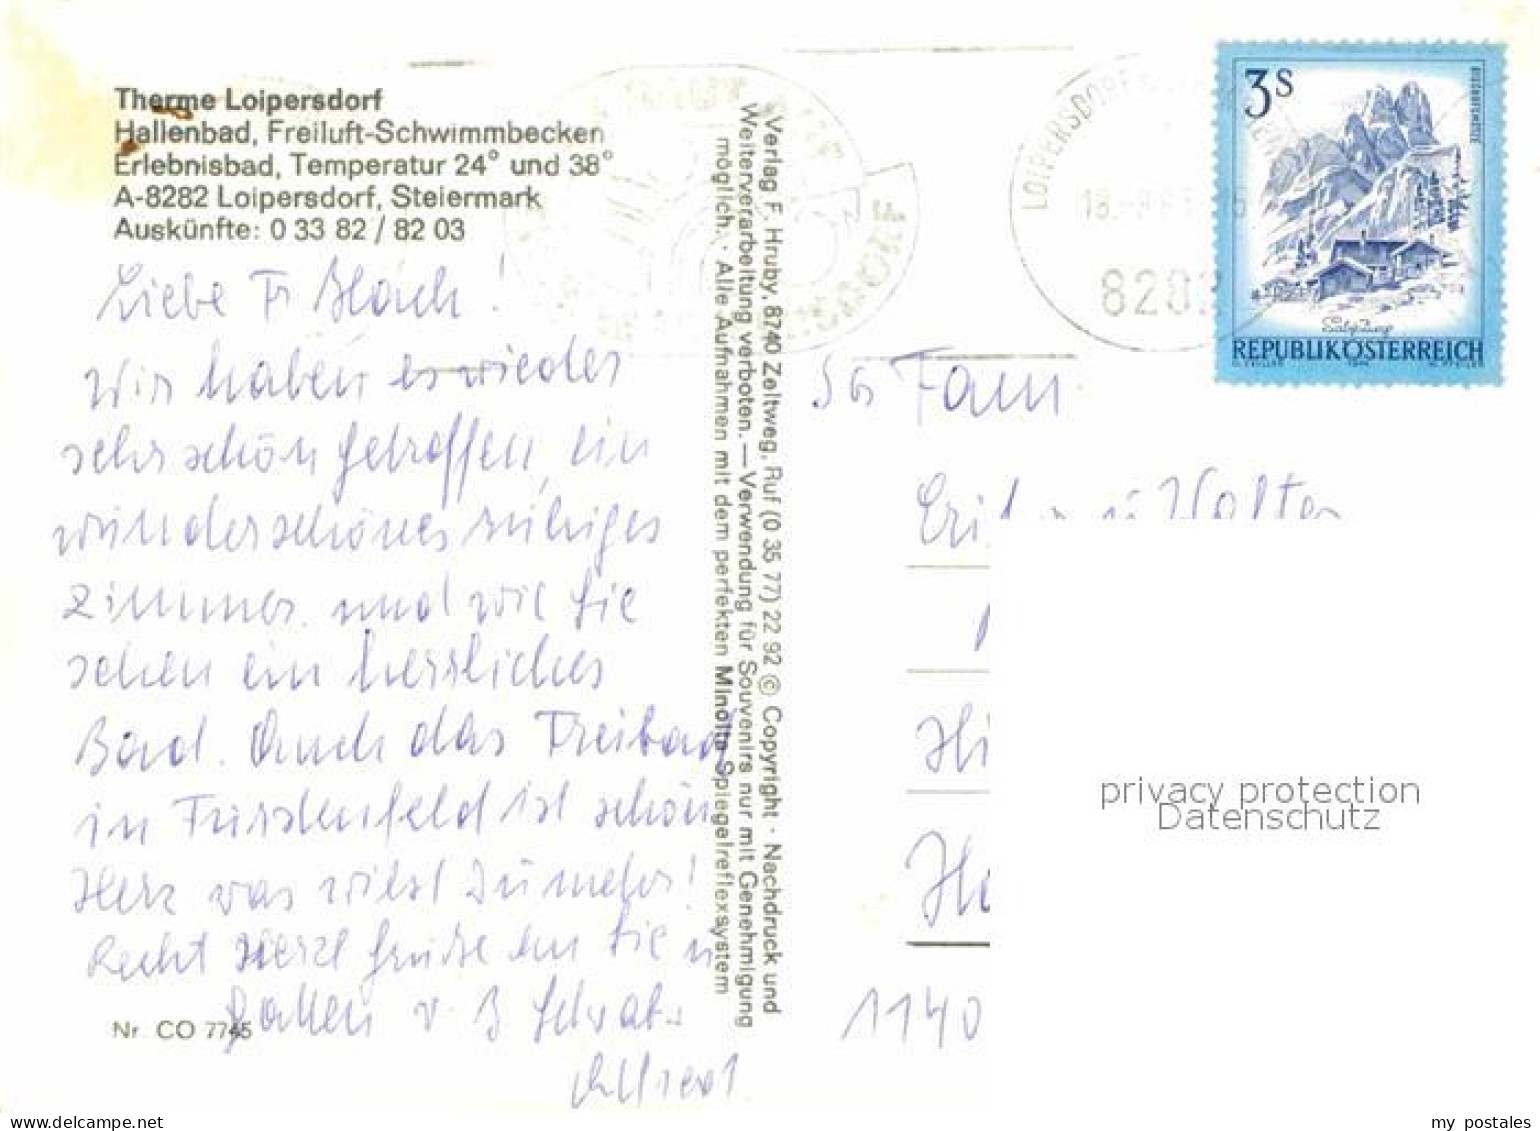 Therme Loipersdorf
Hallenbad, Freiluft-Schwimmbecken
Erlebnisbad, Temperatur 24° und 38°
A-8282 Loipersdorf, Steiermark
Auskünfte: 0 33 82 / 82 03
Liebe Fr
Wir haben es wieder
sehr schön getroffen, ein
wunderschönes ruhiges
Zimmer und wie Sie
sehen ein herrliches
Bad. Auch das Freibad
in Fürstenfeld ist schön
Herz was willst Du mehr!
Recht Herzl Grüße an Sie u
Gatten v.
Nr. CO 7745
Verlag F. Hruby, 8740 Zeltweg, Ruf (0 35 77) 22 92 © Copyright · Nachdruck und
Weiterverarbeitung verboten. — Verwendung für Souvenirs nur mit Genehmigung
möglich. · Alle Aufnahmen mit dem perfekten Minolta Spiegelreflexsystem
LOIPERSDORF
8282
3S
BISCHOFSMÜTZE
Salzburg
REPUBLIK ÖSTERREICH
Fam.
u Walter
1140
privacy protection
Datenschutz
delcampe.net
my_postales